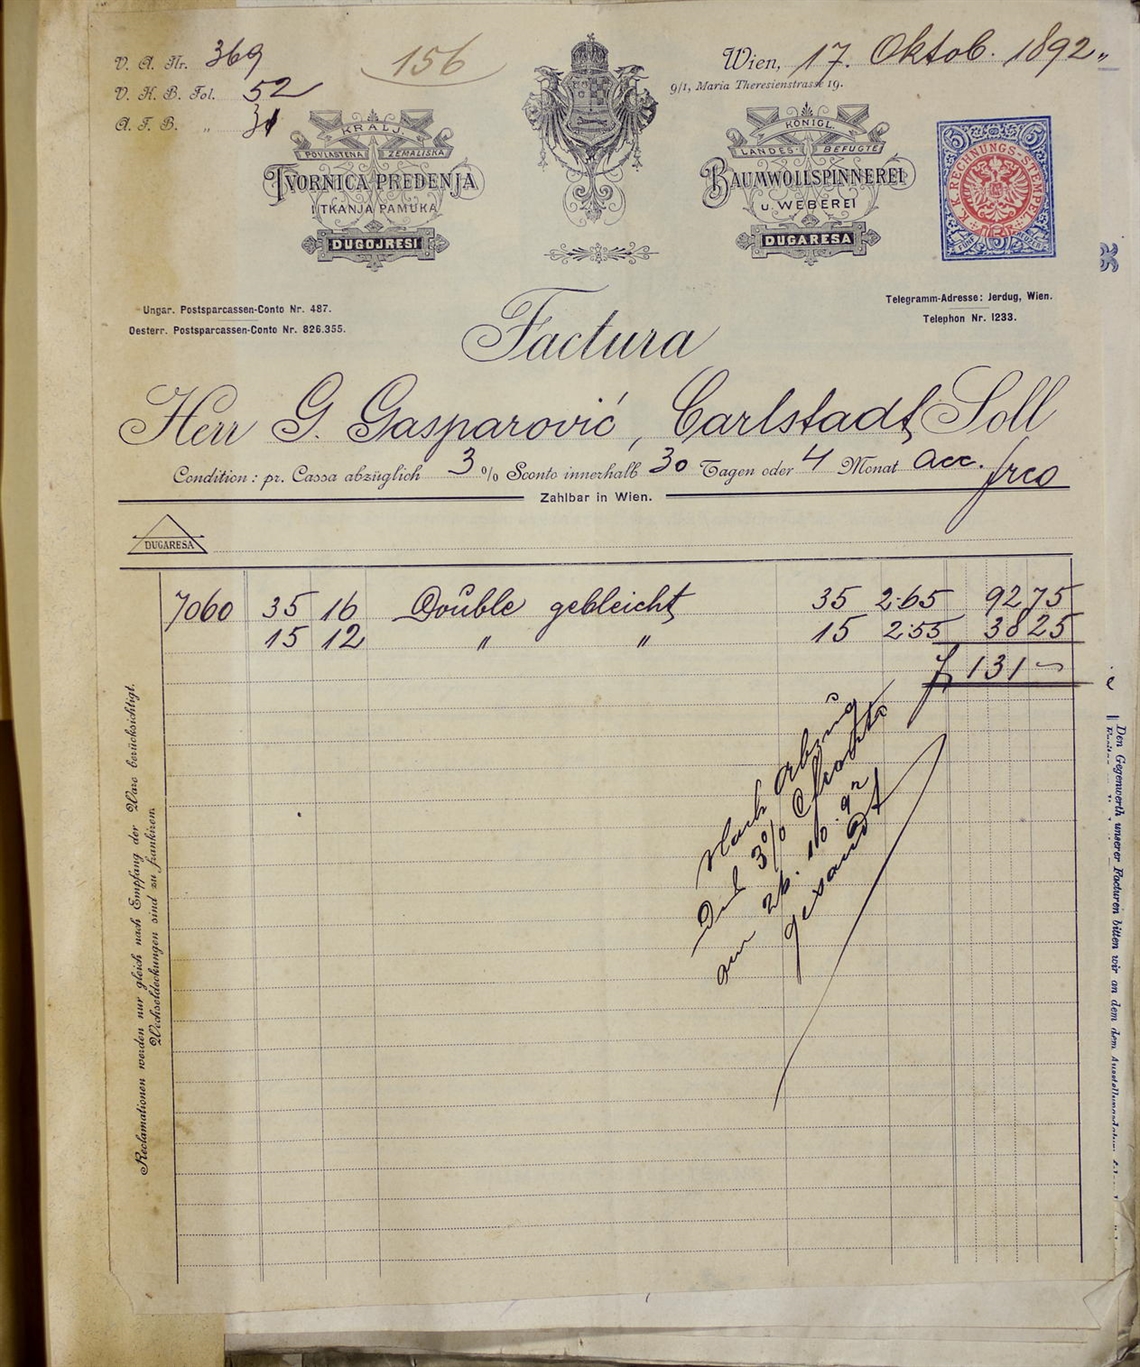 V. A. Nr. 369
156
Wien, 17. Oktob. 1892
V. K. B. Fol. 52
9/1, Maria Theresienstrasse 19.
A. F. B. „ 31
KRALJ.
POVLAŠTENA ZEMALJSKA
TVORNICA PREDENJA
I TKANJA PAMUKA
DUGOJRESI
KÖNIGL.
LANDES-BEFUGTE
BAUMWOLLSPINNEREI
u. WEBEREI
DUGARESA
5 5
K. K. RECHNUNGS-STEMPEL
Ungar. Postsparcassen-Conto Nr. 487.
Oesterr. Postsparcassen-Conto Nr. 826.355.
Telegramm-Adresse: Jerdug, Wien.
Telephon Nr. 1233.
Factura
Herr G. Gasparović, Carlstadt Soll
Condition: pr. Cassa abzüglich 3 % Sconto innerhalb 30 Tagen oder 4 Monat acc. frco
Zahlbar in Wien.
DUGARESA
7060 35 16 Double gebleicht 35 2·65 92 75
15 12 „ „ 15 2·55 38 25
f 131 ~
Nach Abzug
3% Ihnen
am 26. 10. 92
gesandt
Reclamationen werden nur gleich nach Empfang der Ware berücksichtigt.
Wechseldeckungen sind zu frankiren.
Den Gegenwerth unserer Facturen bitten wir an dem dem Ausstellungsdatum